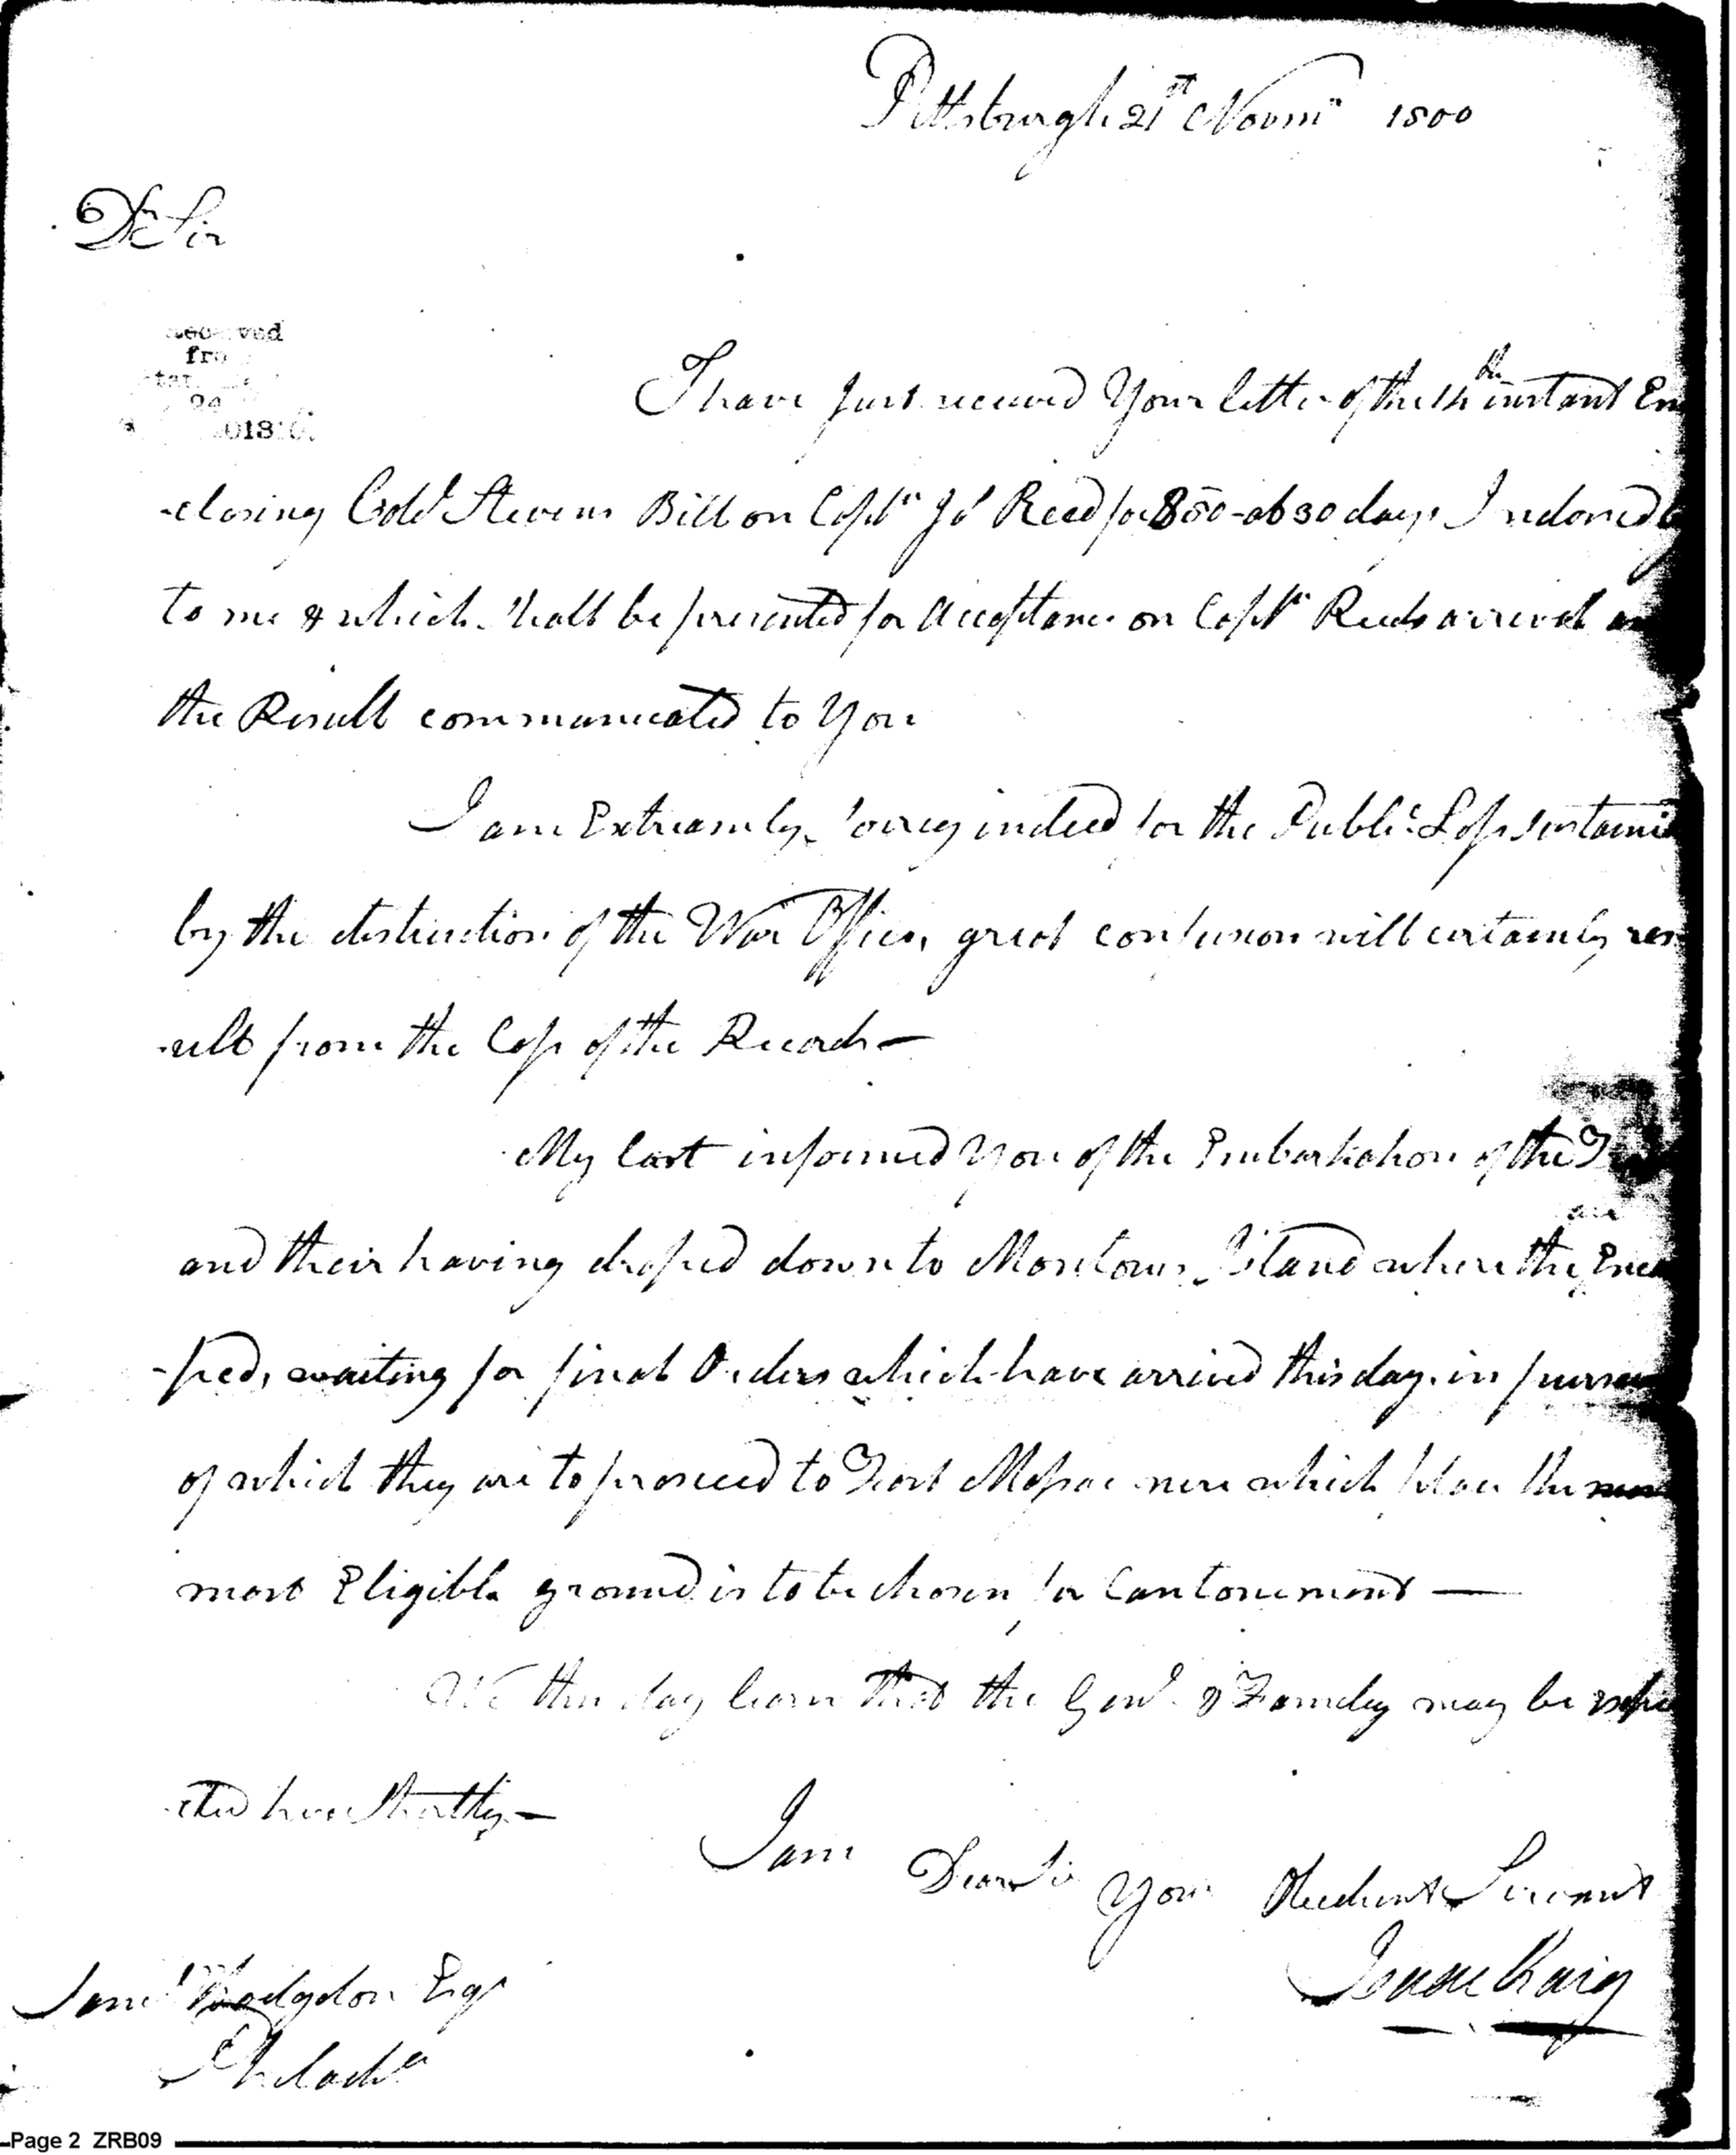 Pittsburgh 21st Novmr 1800
Dr Sir
fro
I have just received Your letter of the 14th instant En
-closing Colo Stevens Bill on Captn Js Reed for 800-at 30 days Indorsed
to me & which shall be presented for acceptance on Captn Reeds arrival an
the Result communicated to You
I am Extreamly sorry indeed for the Public Loss sustain
by the destruction of the War Office, great confusion will certainly res
-ult from the Loss of the Records—
My last informed You of the Embarkation of the T
are
and their having droped down to Montours Island where they Enca
-ped, waiting for final Orders which have arrived this day. in pursu
of which they are to proceed to Fort Massac near which place the
most Eligible ground is to be chosen for Cantonement —
We this day learn that the Genl & Family may be expe
-cted here Shortly—
I am
Dear Sir
Your Obedient Servant
Isaac Craig
Saml Hodgdon Esqr
Philada
Page 2 ZRB09